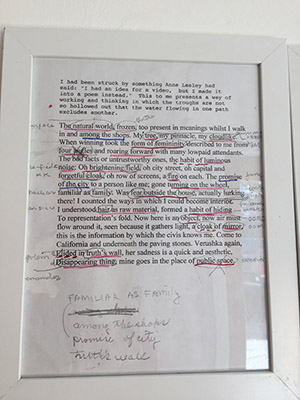 I had been struck by something Anne Lesley had
said: "I had an idea for a video, but I made it
into a poem instead." This to me presents a way of
working and thinking in which the troughs are not
so hollowed out that the water flowing in one path
excludes another.
The natural world, frozen, too present in meanings whilst I walk
in and among the shops. My tree, my pinnacle, my cloudlike.
When winning took the form of femininity described to me from
four ladies and roaring forward with many lowpaid attendants.
The bad facts or untrustworthy ones, the habit of luminous
noise. Oh brightening field, oh city street, oh capital and
forgetful cloak, oh row of screens, a fire on each. The promise
of the city to a person like me; gone turning on the wheel,
familiar as family. Was fear outside the house, actually lurking
there? I counted the ways in which I could become interior.
I understood hair as raw material, formed a habit of hiding
To representation's fold. Now here is an object, now air must
flow around it, seen because it gathers light, a cloak of mirror,
this is the information by which the devils knows me. Come to
California and underneath the paving stones. Verushka again,
Elided in truth's wall, her sadness is a quick and aesthetic.
Disappearing thing, mine goes in the place of public space.
FAMILIAR AS FAMILY
among the shops
promise of city
truth's wall